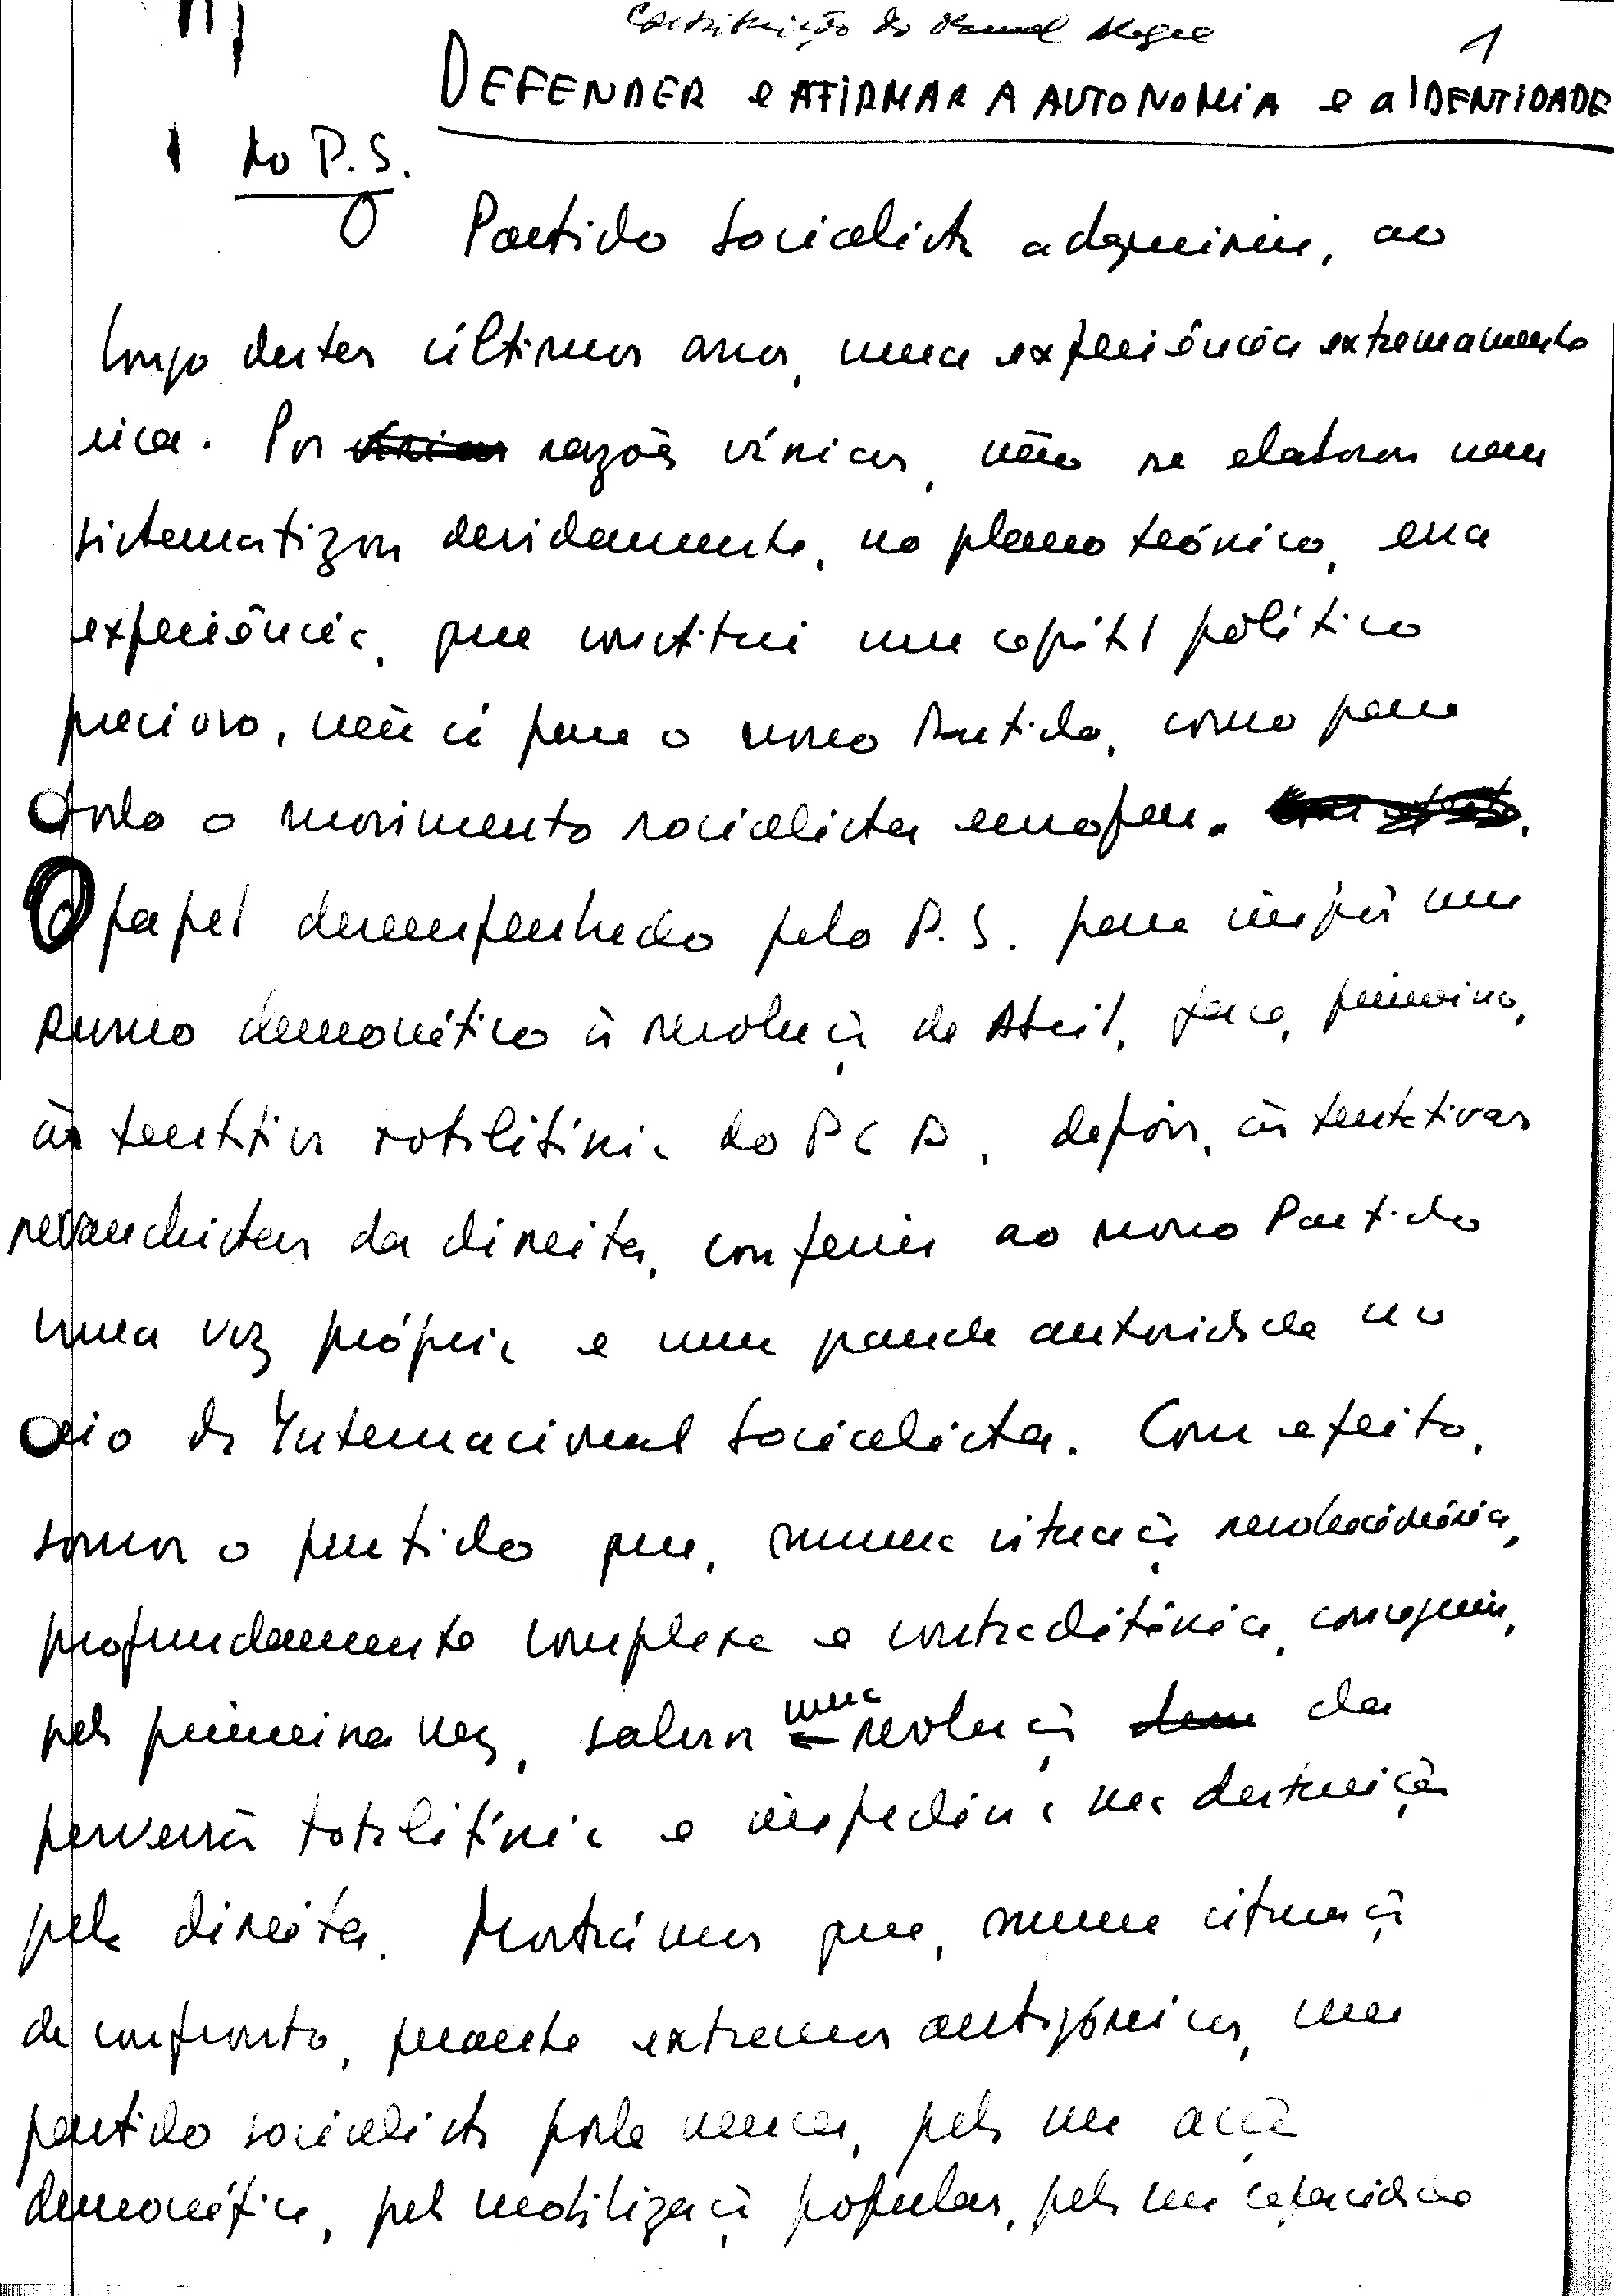 Contribuição do Manuel Alegre
1
DEFENDER e AFIRMAR A AUTONOMIA e a IDENTIDADE
do P.S.
O Partido Socialista adquiriu, ao
longo destes últimos anos, uma experiência extremamente
rica. Por várias razões várias, não se elaborou nem
sistematizou devidamente, no plano teórico, essa
experiência, que constitui um capital político
precioso, não só para o nosso Partido, como para
todo o movimento socialista europeu.
O papel desempenhado pelo P.S. para impôr um
rumo democrático à revolução de Abril, face, primeiro,
às tentativas totalitárias do PCP, depois, às tentativas
revanchistas da direita, conferiu ao nosso Partido
uma voz própria e uma grande autoridade no
seio da Internacional Socialista. Com efeito,
somos o partido que, numa situação revolucionária,
profundamente complexa e contraditória, conseguiu,
pela primeira vez, salvar uma revolução da
perversão totalitária e impedir a sua destruição
pela direita. Mostrámos que, numa situação
de confronto, perante extremos antagónicos, um
partido socialista pode vencer, pela sua acção
democrática, pela mobilização popular, pela sua capacidade